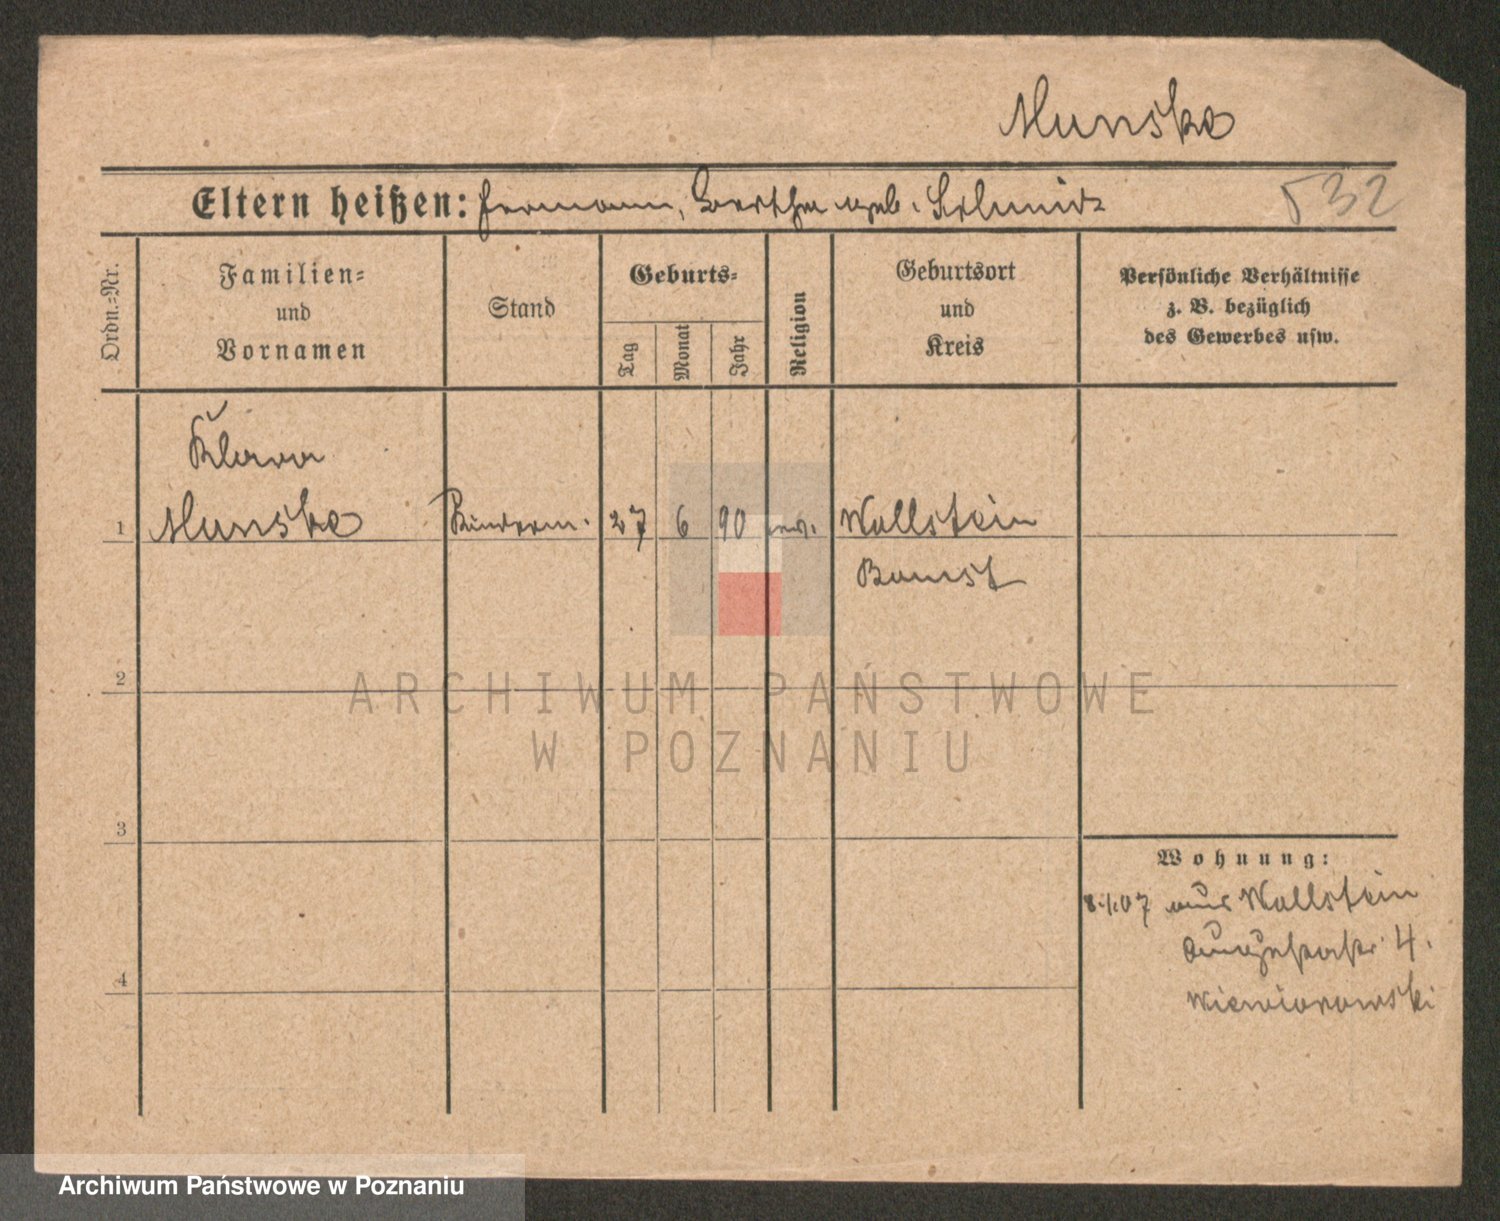 Munske
Eltern heißen: Hermann, Bertha geb. Schmidt
532
Ordn.=Nr.
Familien=
und
Vornamen
Stand
Geburts=
Tag
Monat
Jahr
Religion
Geburtsort
und
Kreis
Persönliche Verhältnisse
z. B. bezüglich
des Gewerbes usw.
Klara
1 Munske Kinderm. 27 6 90 ev. Wollstein
Bomst
2
ARCHIWUM PAŃSTWOWE
W POZNANIU
3
Wohnung:
8.1.07 aus Wollstein
4.
Wiewiorowski
4
Archiwum Państwowe w Poznaniu